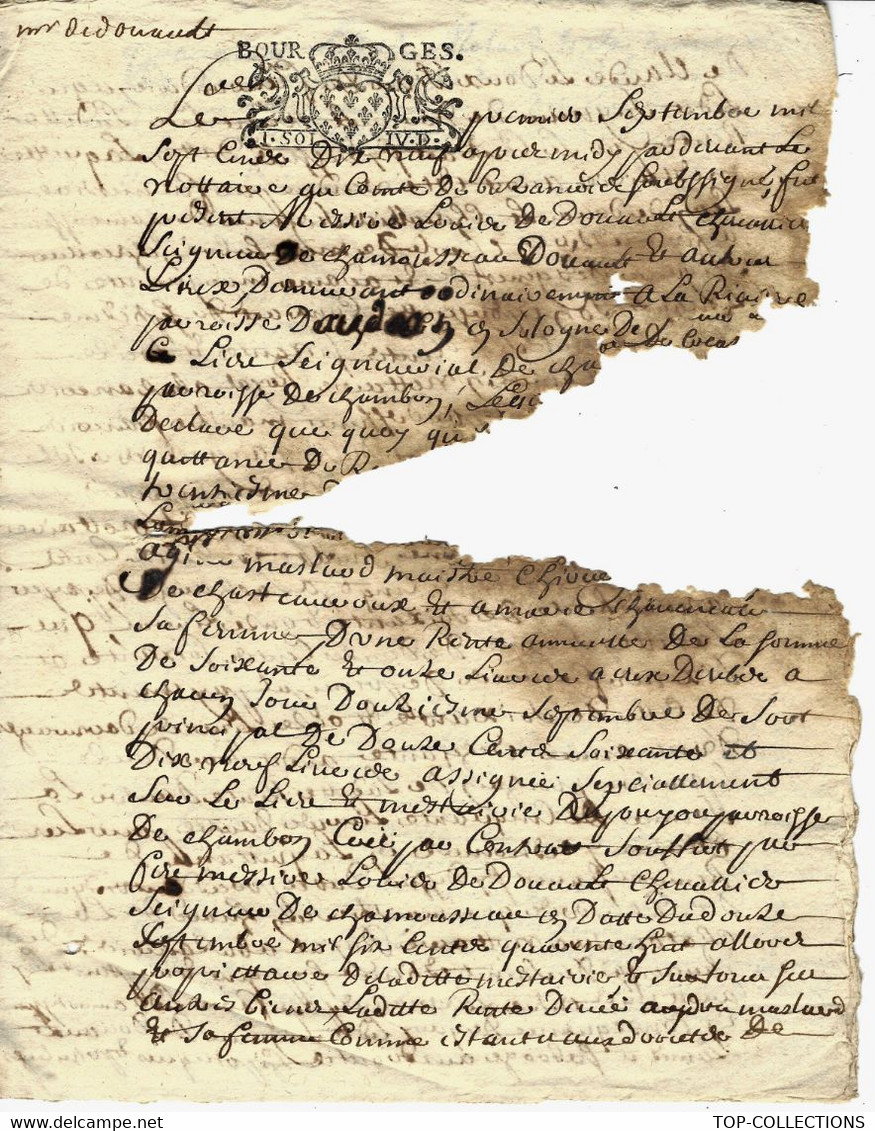 mr de douault
BOURGES.
1. SOL IV. D.
Le premier Septembre mil
Sept Cents Dix neuf apres midy pardevant Le
Nottaire du Comté De buzancois Soubssigné, fut
present Messire Louis De Douault Chevallier
Seigneur De chamousseau Douault et autres
Lieux, Demeurant ordinairement A La Riviere
parroisse D en Sologne De
Ce Lieu Seigneurial De cha
parroisse De chambon, Le
Declare que quoy qu
quittance De R
trentiesme
maslard maistre Chirur
De chasteauroux Et a
Sa femme, D'une Rente annuelle De La somme
De Soixante Et onze Livres a eux Deube a
chacun Jour Douziesme Septembre De Sort
principal De Douze Cents Soixante et
Dix neuf Livres assignée Speciallement
Sur Le Lieu Et mestairie De parroisse
De chambon Créé par Contrat Souffert par
feu messire Louis De Douault Chevallier
Seigneur De chamousseau en Datte Du douze
Septembre mil six Cents quarente huit allors
propriettaire De laditte mestairie, & Sur tous ses
autres biens, Laditte Rente Deue audit maslard
Et Sa femme Comme estant aux droicts De
TOP-COLLECTIONS